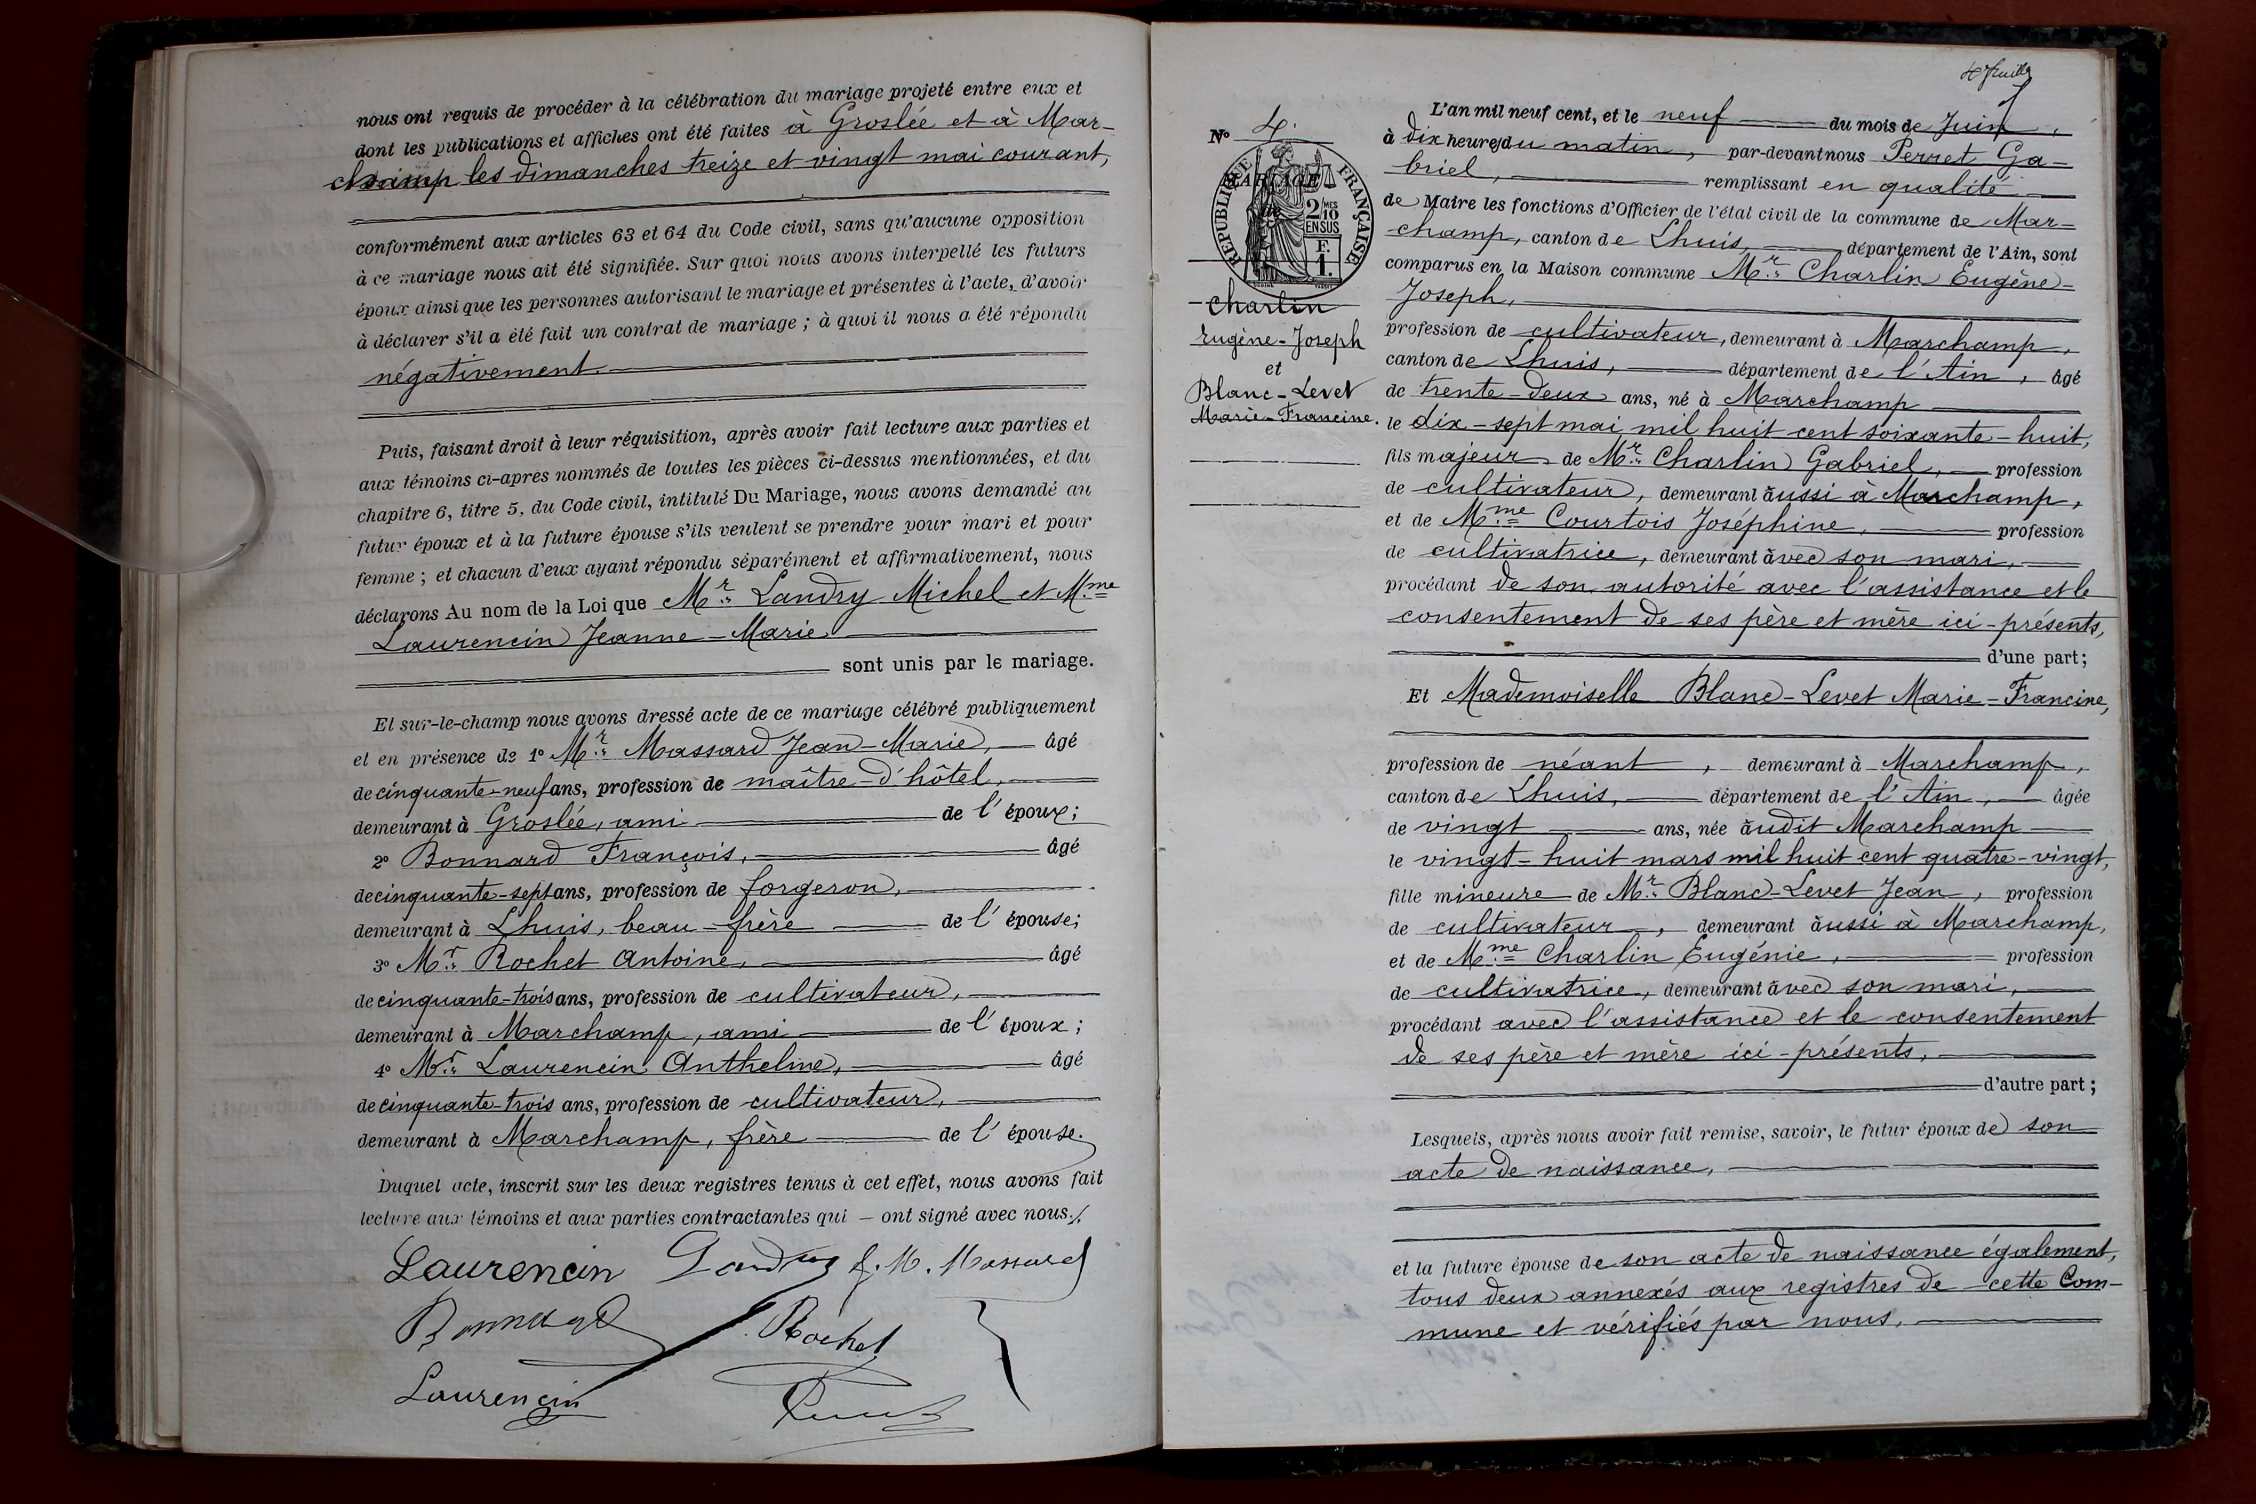 nous ont requis de procéder à la célébration du mariage projeté entre eux et
dont les publications et affiches ont été faites à Groslée et à Mar-
champ les dimanches treize et vingt mai courant,
conformément aux articles 63 et 64 du Code civil, sans qu'aucune opposition
à ce mariage nous ait été signifiée. Sur quoi nous avons interpellé les futurs
époux ainsi que les personnes autorisant le mariage et présentes à l'acte, d'avoir
à déclarer s'il a été fait un contrat de mariage ; à quoi il nous a été répondu
négativement.
Puis, faisant droit à leur réquisition, après avoir fait lecture aux parties et
aux témoins ci-après nommés de toutes les pièces ci-dessus mentionnées, et du
chapitre 6, titre 5, du Code civil, intitulé Du Mariage, nous avons demandé au
futur époux et à la future épouse s'ils veulent se prendre pour mari et pour
femme ; et chacun d'eux ayant répondu séparément et affirmativement, nous
déclarons Au nom de la Loi que Mr Landry Michel et Mme
Laurencin Jeanne-Marie
sont unis par le mariage.
Et sur-le-champ nous avons dressé acte de ce mariage célébré publiquement
et en présence de 1° Mr Massard Jean-Marie, âgé
de cinquante-neuf ans, profession de maître-d'hôtel,
demeurant à Groslée, ami de l'époux;
2° Bonnard François, âgé
de cinquante-sept ans, profession de forgeron,
demeurant à Lhuis, beau-frère de l'épouse;
3° Mr Rochet Antoine, âgé
de cinquante-trois ans, profession de cultivateur,
demeurant à Marchamp, ami de l'époux;
4° Mr Laurencin Anthelme, âgé
de cinquante-trois ans, profession de cultivateur,
demeurant à Marchamp, frère de l'épouse.
Duquel acte, inscrit sur les deux registres tenus à cet effet, nous avons fait
lecture aux témoins et aux parties contractantes qui – ont signé avec nous./.
Laurencin Landry J. M. Massard
Bonnard Rochet
Laurencin Perret
4e feuille
N° 4.
RÉPUBLIQUE FRANÇAISE
MARIAGE
de
2/10 MES
EN SUS
F.
1.
Charlin
Eugène-Joseph
et
Blanc-Levet
Marie-Francine.
L'an mil neuf cent, et le neuf du mois de Juin,
à dix heures du matin, par-devant nous Perret Ga-
briel, remplissant en qualité
de Maire les fonctions d'Officier de l'état civil de la commune de Mar-
champ, canton de Lhuis, département de l'Ain, sont
comparus en la Maison commune Mr Charlin Eugène-
Joseph,
profession de cultivateur, demeurant à Marchamp,
canton de Lhuis, département de l'Ain, âgé
de trente-deux ans, né à Marchamp
le dix-sept mai mil huit cent soixante-huit,
fils majeur de Mr Charlin Gabriel, profession
de cultivateur, demeurant aussi à Marchamp,
et de Mme Courtois Joséphine, profession
de cultivatrice, demeurant avec son mari,
procédant de son autorité avec l'assistance et le
consentement de ses père et mère ici-présents,
d'une part;
Et Mademoiselle Blanc-Levet Marie-Francine,
profession de néant, demeurant à Marchamp,
canton de Lhuis, département de l'Ain, âgée
de vingt ans, née audit Marchamp
le vingt-huit mars mil huit cent quatre-vingt,
fille mineure de Mr Blanc-Levet Jean, profession
de cultivateur, demeurant aussi à Marchamp,
et de Mme Charlin Eugénie, profession
de cultivatrice, demeurant avec son mari,
procédant avec l'assistance et le consentement
de ses père et mère ici-présents,
d'autre part;
Lesquels, après nous avoir fait remise, savoir, le futur époux de son
acte de naissance,
et la future épouse de son acte de naissance également,
tous deux annexés aux registres de cette Com-
mune et vérifiés par nous,